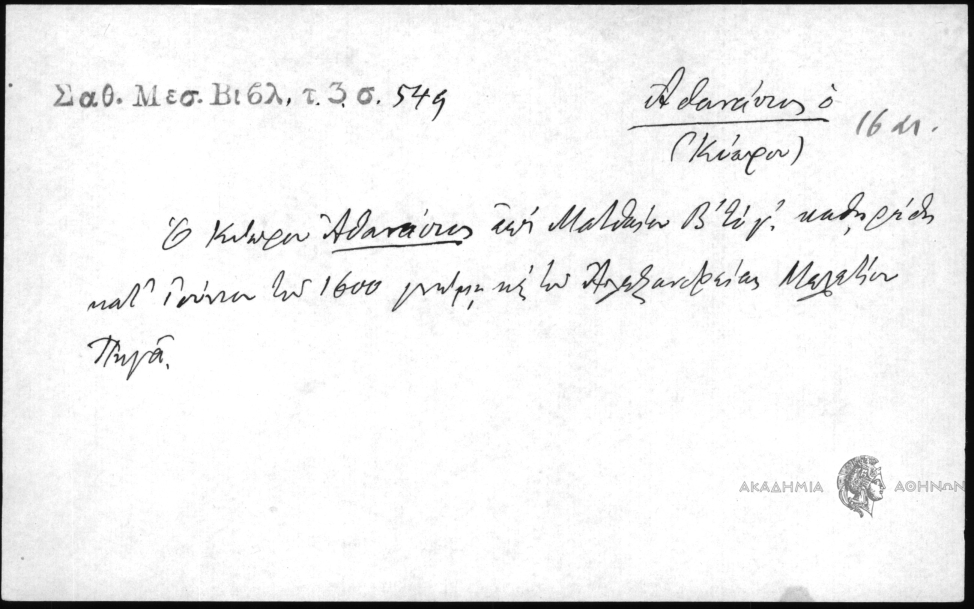 Σαθ. Μεσ. Βιβλ. τ. 3 σ. 549
Ἀθανάσιος ὁ
(Κύπρου)
16 αι.
Ὁ Κύπρου Ἀθανάσιος ἐπὶ Ματθαίου Β΄ τῷ γ΄. καθῃρέθη
κατ' Ἰούνιον τοῦ 1600 γνώμῃ κὲ τοῦ Ἀλεξανδρείας Μελετίου
Πηγᾶ.
ΑΚΑΔΗΜΙΑ ΑΘΗΝΩΝ